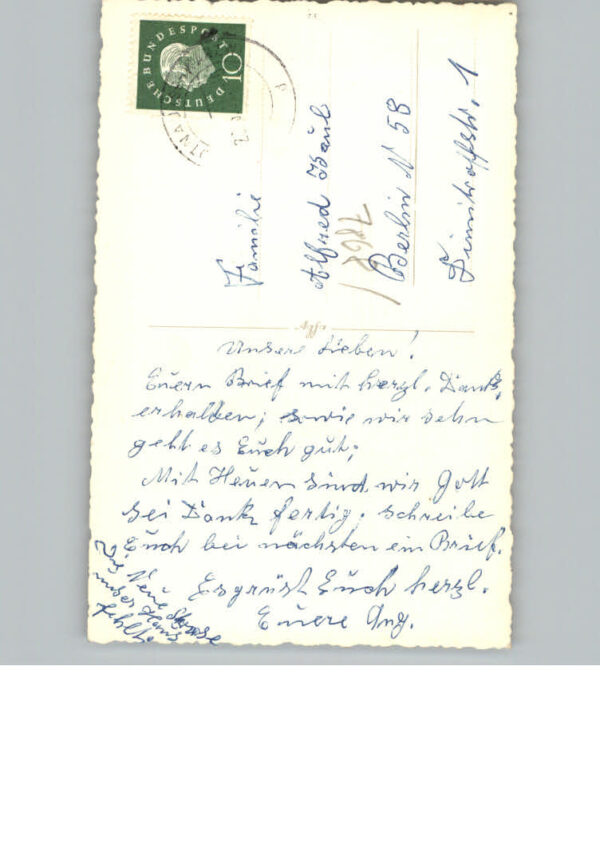 DEUTSCHE BUNDESPOST
10
Familie
Alfred
Berlin N 58
Dimitroffstr. 1
Unsere Lieben!
Euern Brief mit herzl. Dank,
erhalten; sowie wir sehn
geht es Euch gut;
Mit Heuen sind wir Gott
sei Dank fertig. schreibe
Euch bei nächsten ein Brief.
Es grüst Euch herzl.
Euere Ang.
Die Neue Strasse
unser Haus
fehlt